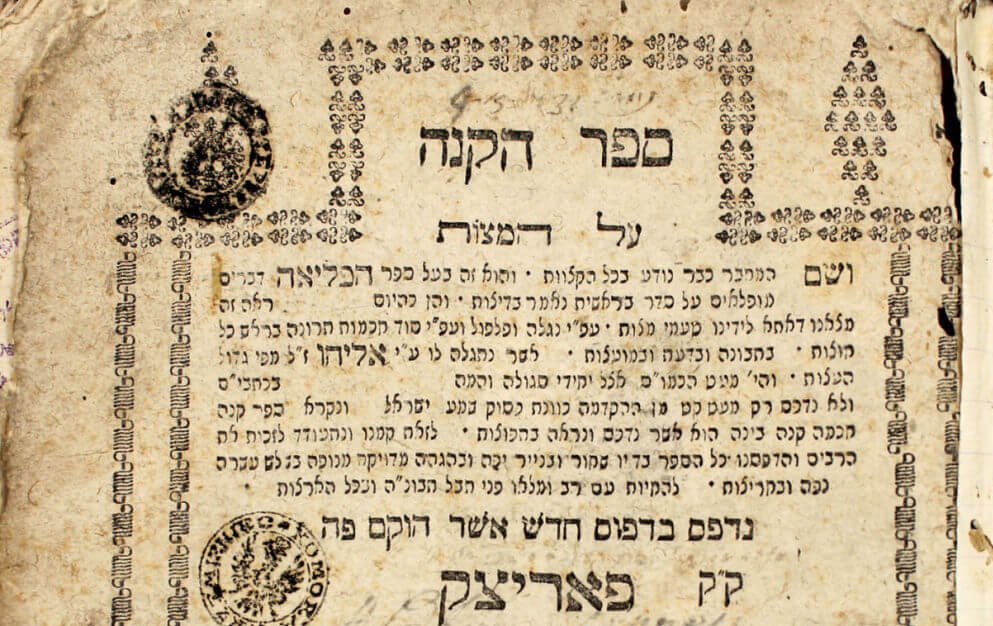 ספר הקנה
על המצות
ושם המחבר כבר נודע בכל הקצוות · והוא זה בעל ספר הפליאה דברים
מופלאים על סדר בראשית נאמר בדיצות · והן כהיום ראה זה
מצאנו דאתא לידינו טעמי מצות · עפ"י נגלה ופלפול ועפ"י סוד חכמות תרונה בראש כל
חוצות · בתבונה ובדעה ובמועצות · אשר נתגלה לו ע"י אליהו ז"ל מפי גדול
העצות · והי' מעט הכמו"ס אצל יחידי סגולה והמה בכתבי"ם
ולא נדפס רק מעט קט מן ההקדמה כוונת פסוק שמע ישראל ונקרא ספר קנה
חכמה קנה בינה הוא אשר נדפס ונראה בתפוצות · לזאת קמנו ונתעודד לזכית את
הרבים והדפסנו כל הספר בדיו שחור ובנייר יפה ובהגהה מדויקת מנופה בשלש עשרה
נפה ובחריצות · להחיות עם רב ומלאו פני תבל תבונ"ה ובכל הארצות ·
נדפס בדפוס חדש אשר הוקם פה
ק"ק פאריצק